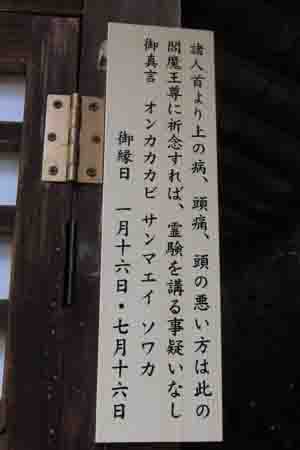 諸人首より上の病、頭痛、頭の悪い方は此の
閻魔王尊に祈念すれば、霊験を講る事疑いなし
御真言 オンカカカビ サンマエイ ソワカ
御縁日 一月十六日・七月十六日